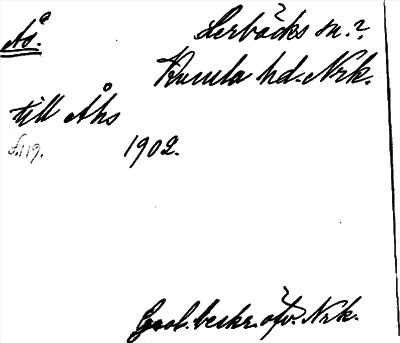 Ås.
Lerbäcks sn.?
Kumla hd. Nrk.
till Åhs
s. 119. 1902.
Geol. beskr. öfv. Nrk.